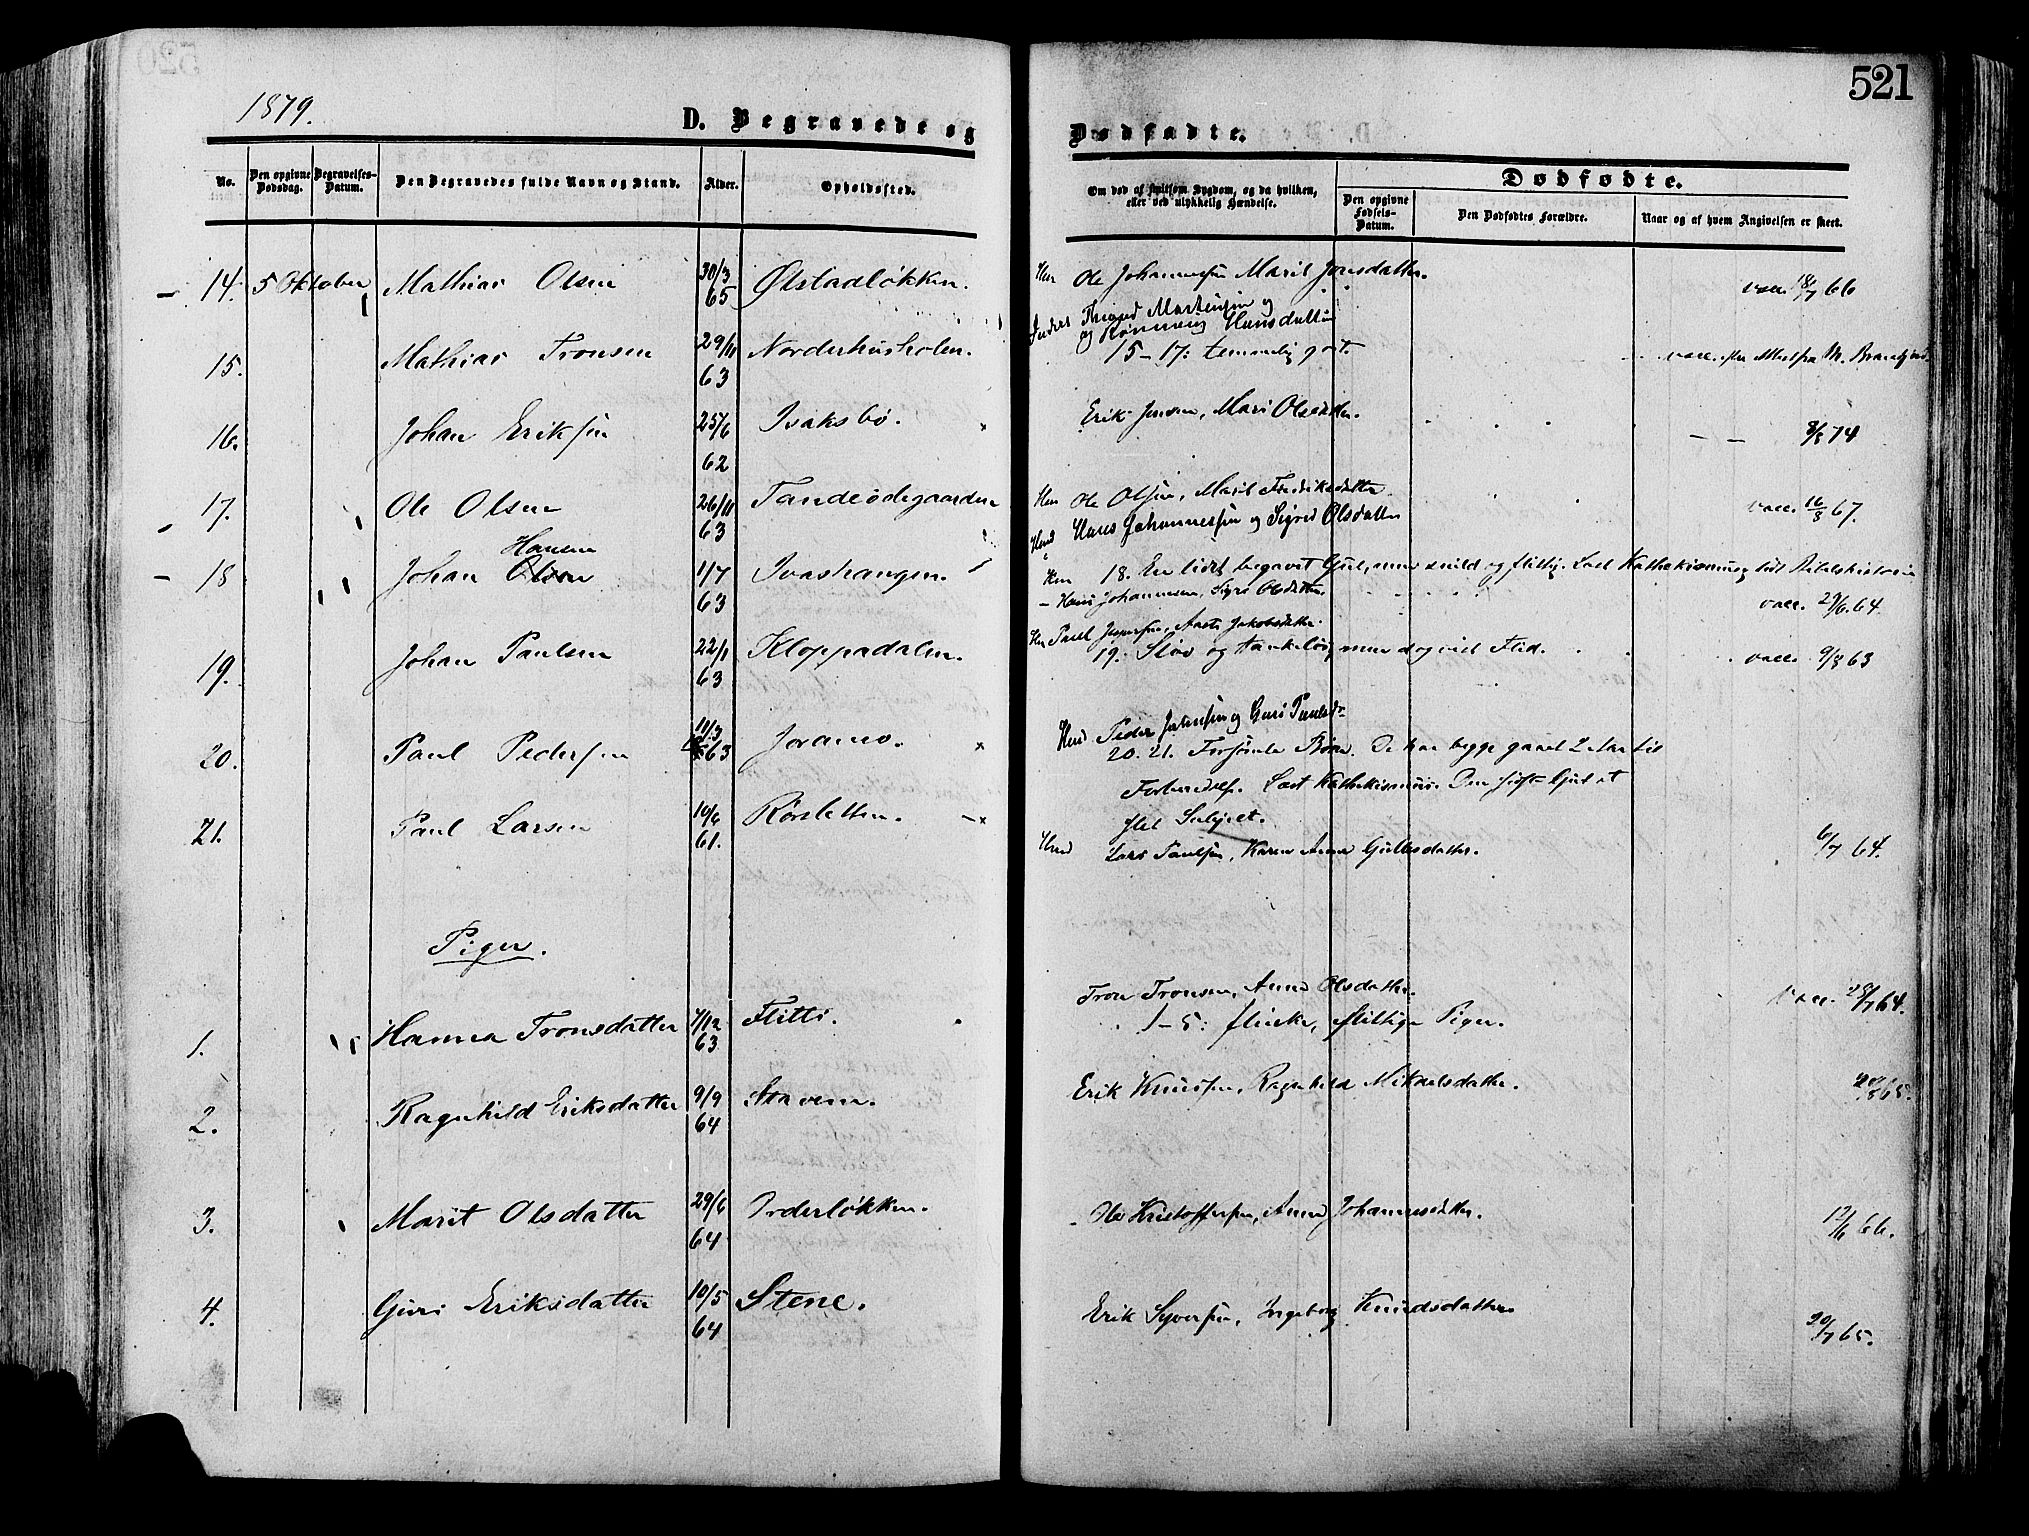 521
1879.
D. Begravede og Dødfødte.
No.
Den opgivne Dødsdag.
Begravelses-Datum.
Den Begravedes fulde Navn og Stand.
Alder.
Opholdssted.
Om død af smitsom Sygdom, og da hvilken, eller ved ulykkelig Hændelse.
Dødfødte.
Den opgivne Fødsels-Datum.
Den Dødfødtes Forældre.
Naar og af hvem Angivelsen er skeet.
14. 5 Oktober Mathias Olsen 30/3 65 Ølstadløkken. Ole Johannessen Marit Jonsdatter. vacc. 18/7 66
Trond Mortensen og
og Rønnaug Hansdatter
15. Mathias Tronsen 29/11 63 Norderhusholen. 15-17: temmelig godt. vacc.
16. Johan Eriksen 25/6 62 Isaksbø. Erik Jensen, Mari Olsdatter. — — 8/8 74
17. Ole Olsen 26/11 63 Tandeødegaarden Ole Olsen, Marit Fredriksdatter. vacc. 16/8 67.
Hans Johannessen og Sigrid Olsdatter
Hansen
18 Johan Olsen 1/7 63 Ivashaugen. 18. En lidet begavet Gut, men snild og flittig. Læst Kathekismus og lidt Bibelhistorie
Hans Johannesen, Sigri Olsdatter. vacc. 29/6. 64.
Paul Jespersen, Anne Jakobsdatter.
19. Johan Paulsen 22/1 63 Kloppadalen. 19. Sløv og tankeløs, men dog vist Flid. vacc. 9/8 63
Peder Johansen og Guri Paulsdr
20. Paul Pedersen 11/3 63 Joramo. 20. 21. Forsømte Børn. De har begge gaaet 2 Aar til
Forberedelse. Læst Kathekismus. Den sidste Gut et
slet Subject.
21. Paul Larsen 10/6 61. Rørsletten. Lars Paulsen, Karen Anne Gulbrsdatter. 6/7 64.
Piger.
Tron Tronsen, Anne Olsdatter. vacc. 28/7 64.
1. Hanna Tronsdatter 7/12 63 Flitti. 1-5: flinke, flittige Piger.
2. Ragnhild Eriksdatter 9/9 64 Stavem. Erik Knutsen, Ragnhild Mikkelsdatter. 20/8 65.
3. Marit Olsdatter 29/6 64 Orderløkken. Ole Kristoffersen, Anne Johannesdatter. 12/6 66.
4. Guri Eriksdatter 10/5 64 Stene. Erik Syversen, Ingeborg Knudsdatter 30/7 65.